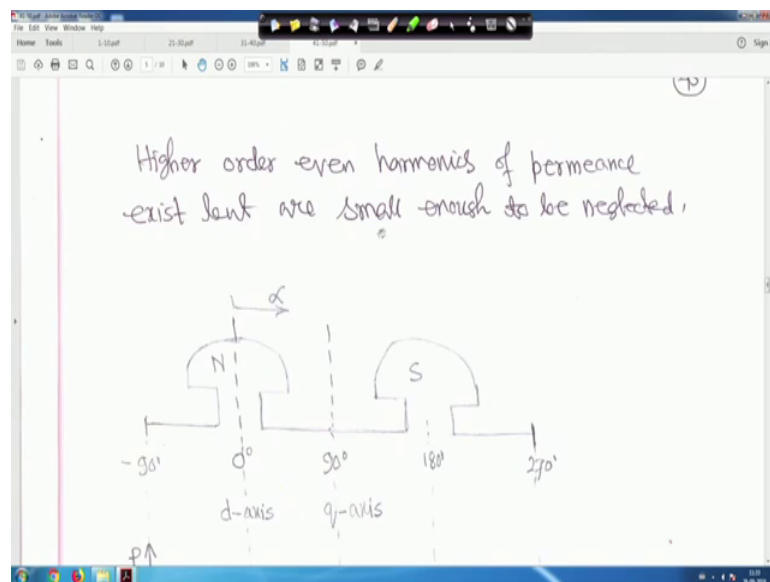 41-50.pdf - Adobe Acrobat Reader DC
File Edit View Window Help
Home Tools 1-10.pdf 21-30.pdf 31-40.pdf 41-50.pdf × Sign
5 / 10
Higher order even harmonics of permeance
exist but are small enough to be neglected.
α
N S
-90° 0° 90° 180° 270°
d-axis q-axis
P↑